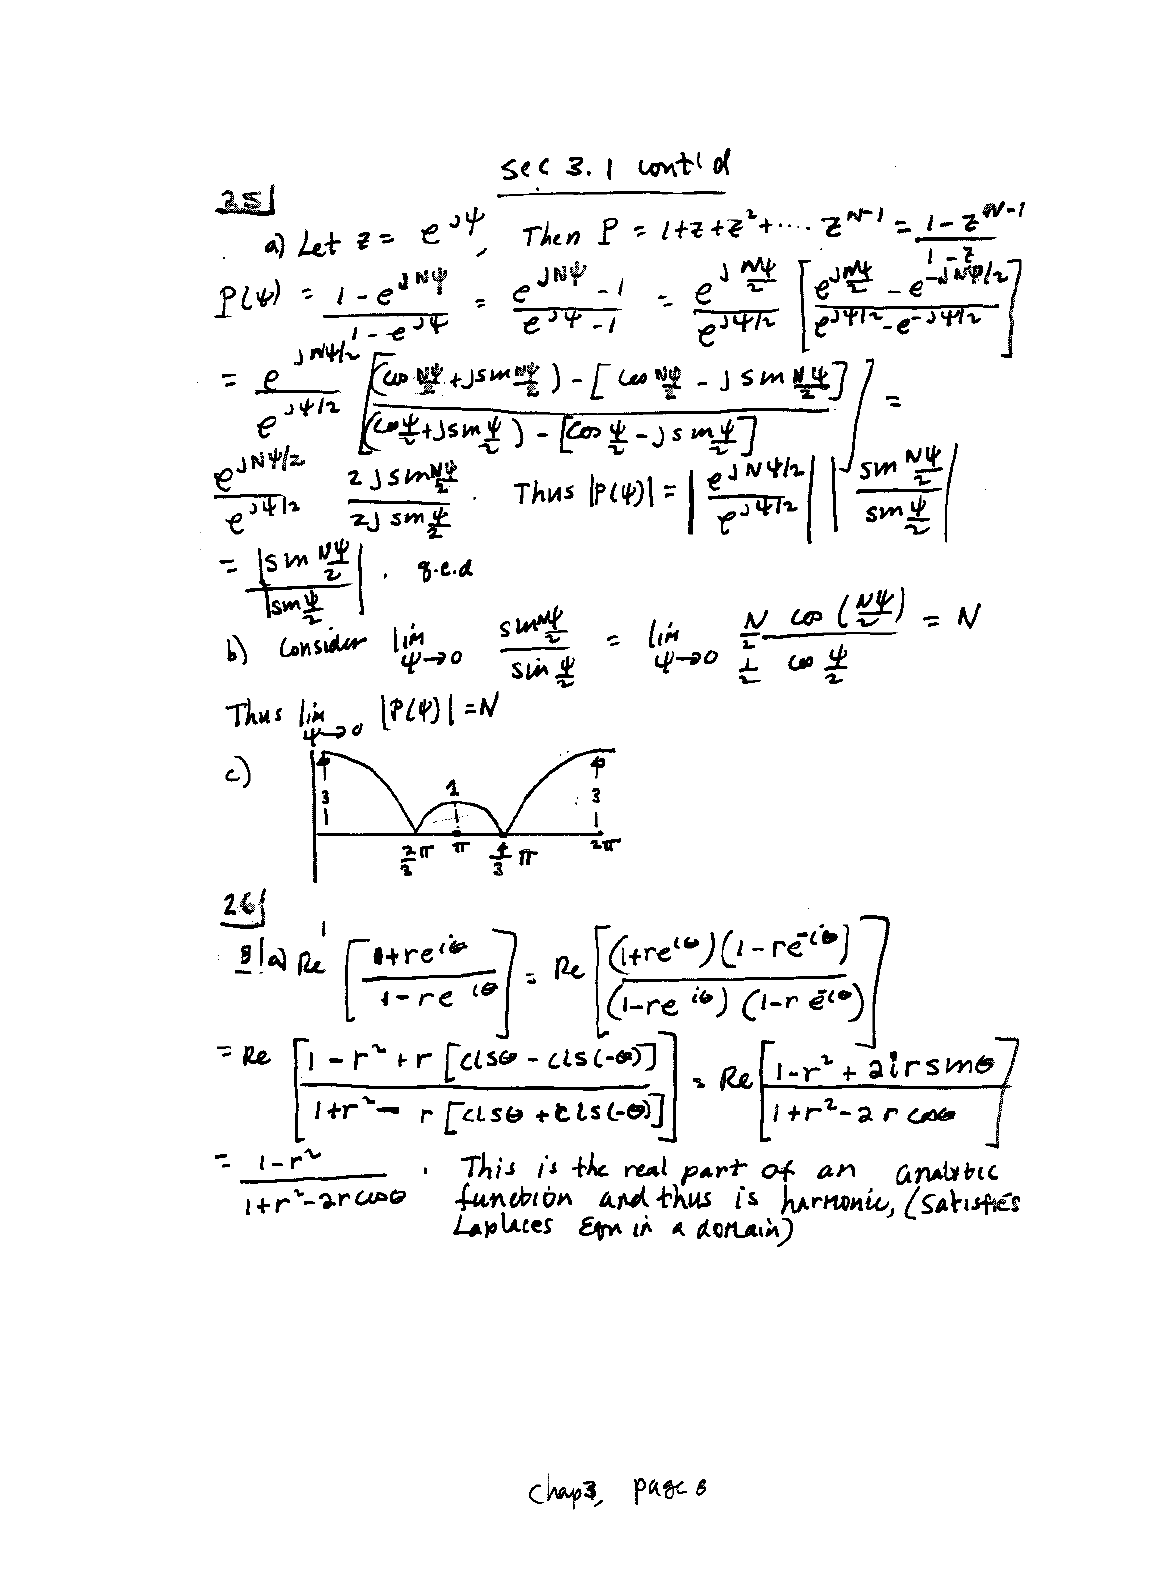 Sec 3.1 cont'd
25)
a) Let z = e^{jψ}, Then P = 1+z+z^2+.... z^{N-1} = \frac{1-z^{N-1}}{1-z}
P(ψ) = \frac{1-e^{jNψ}}{1-e^{jψ}} = \frac{e^{jNψ}-1}{e^{jψ}-1} = \frac{e^{j\frac{Nψ}{2}}}{e^{jψ/2}} [\frac{e^{j\frac{Nψ}{2}} - e^{-jNψ/2}}{e^{jψ/2}-e^{-jψ/2}}]
= \frac{e^{jNψ/2}}{e^{jψ/2}} [\frac{(cos \frac{Nψ}{2} + j sin \frac{Nψ}{2}) - [cos \frac{Nψ}{2} - j sin \frac{Nψ}{2}]}{(cos \frac{ψ}{2} + j sin \frac{ψ}{2}) - [cos \frac{ψ}{2} - j sin \frac{ψ}{2}]}] =
\frac{e^{jNψ/2}}{e^{jψ/2}} \frac{2j sin \frac{Nψ}{2}}{2j sin \frac{ψ}{2}}. Thus |P(ψ)| = |\frac{e^{jNψ/2}}{e^{jψ/2}}| |\frac{sin \frac{Nψ}{2}}{sin \frac{ψ}{2}}|
= |\frac{sin \frac{Nψ}{2}}{sin \frac{ψ}{2}}|. q.e.d
b) Consider lim_{ψ→0} \frac{sin \frac{Nψ}{2}}{sin \frac{ψ}{2}} = lim_{ψ→0} \frac{\frac{N}{2} cos (\frac{Nψ}{2})}{\frac{1}{2} cos \frac{ψ}{2}} = N
Thus lim_{ψ→0} |P(ψ)| = N
c)
3 1 3
\frac{2}{3}π π \frac{4}{3}π 2π
26)
a) Re [\frac{1+re^{iθ}}{1-re^{iθ}}] = Re [\frac{(1+re^{iθ})(1-re^{-iθ})}{(1-re^{iθ})(1-re^{-iθ})}]
= Re [\frac{1-r^2+r[cisθ - cis(-θ)]}{1+r^2-r[cisθ + cis(-θ)]}] = Re [\frac{1-r^2+2irsinθ}{1+r^2-2r cosθ}]
= \frac{1-r^2}{1+r^2-2rcosθ}. This is the real part of an analytic
function and thus is harmonic, (Satisfies
Laplaces Eqn in a domain)
Chap3, page 8